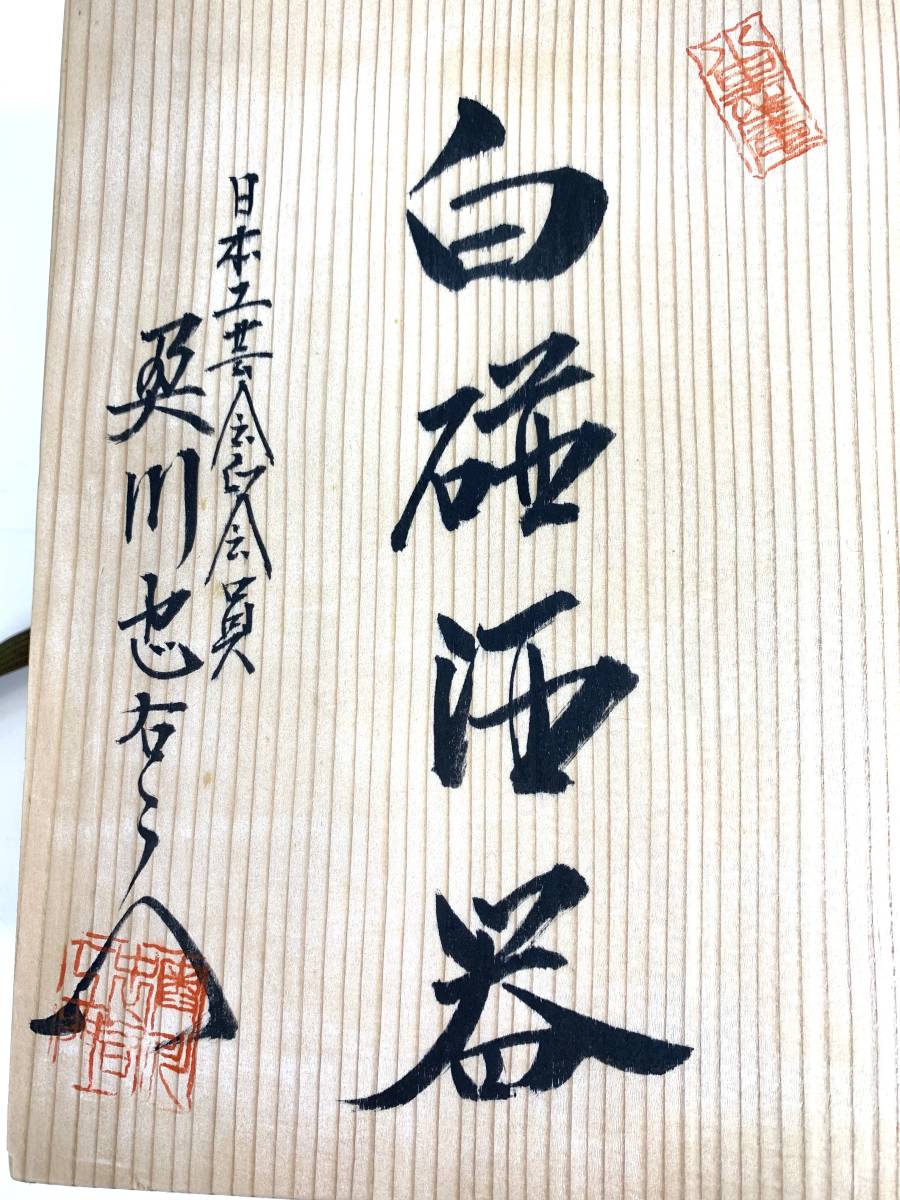 白磁酒器
日本工芸会正会員
奥川忠右エ門